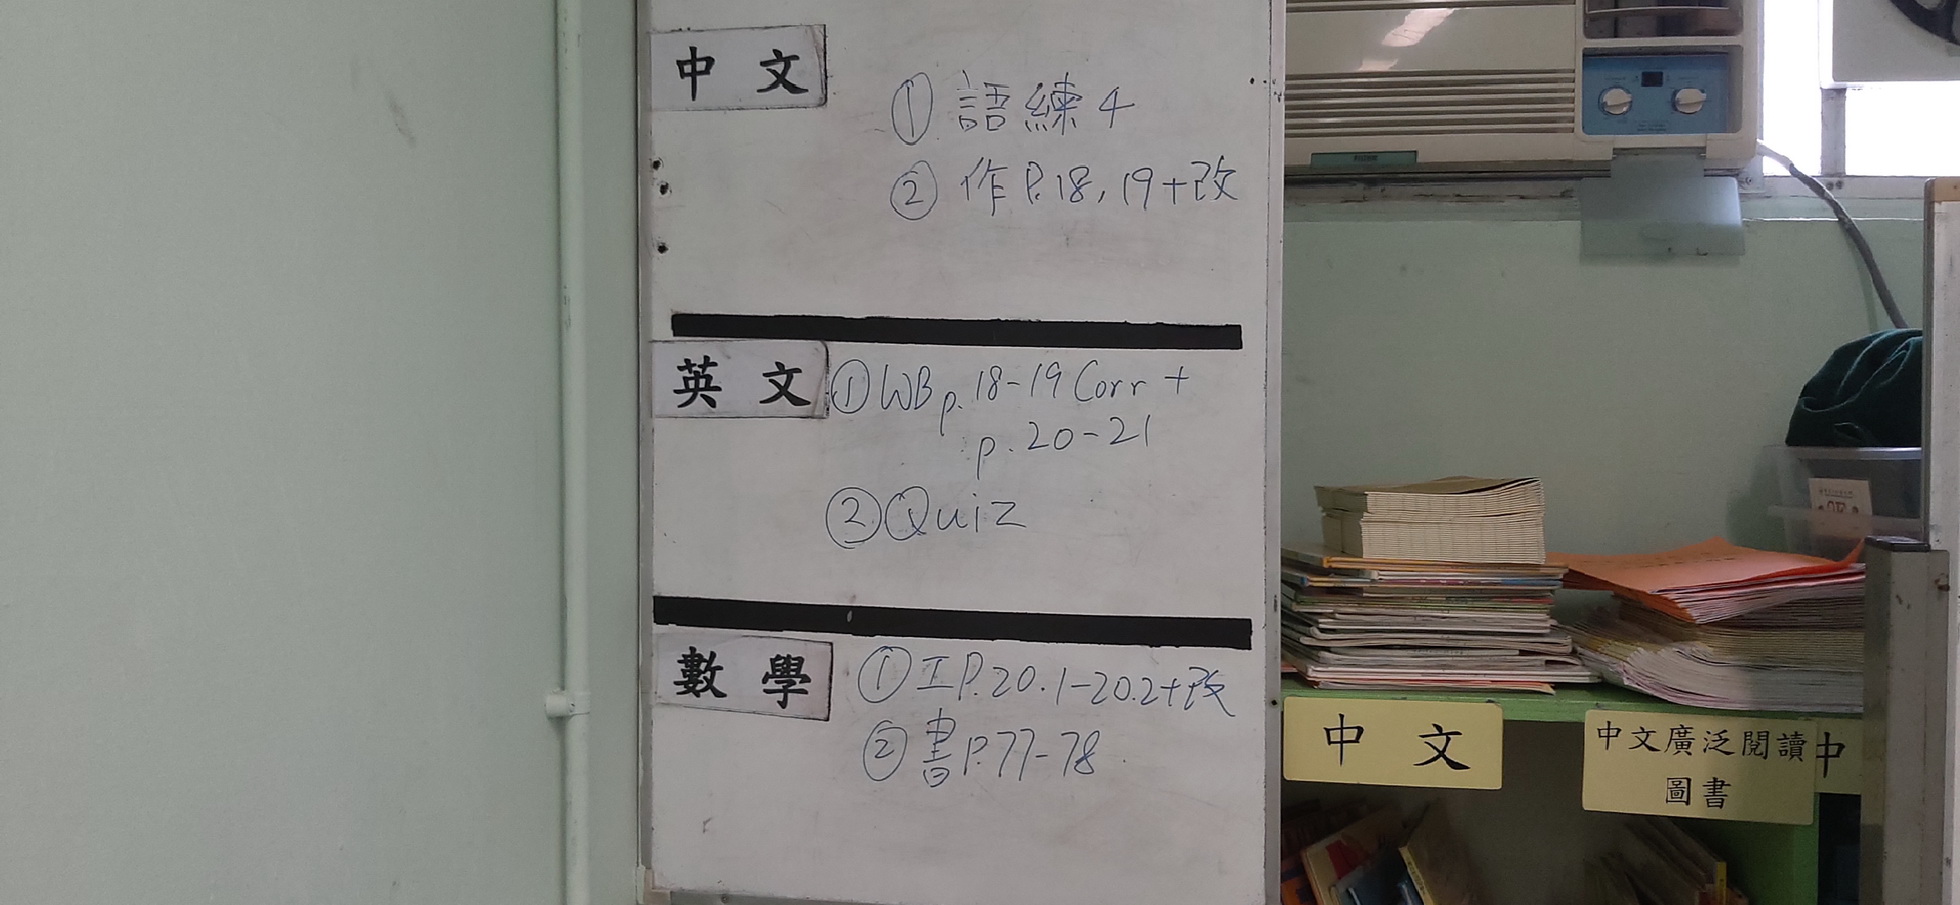 中文
① 語練4
② 作P.18,19+改
英文
① WB p.18-19 Corr +
p.20-21
② Quiz
數學
① 工P.20.1-20.2+改
② 書P.77-78
中文
中文廣泛閱讀
圖書
中